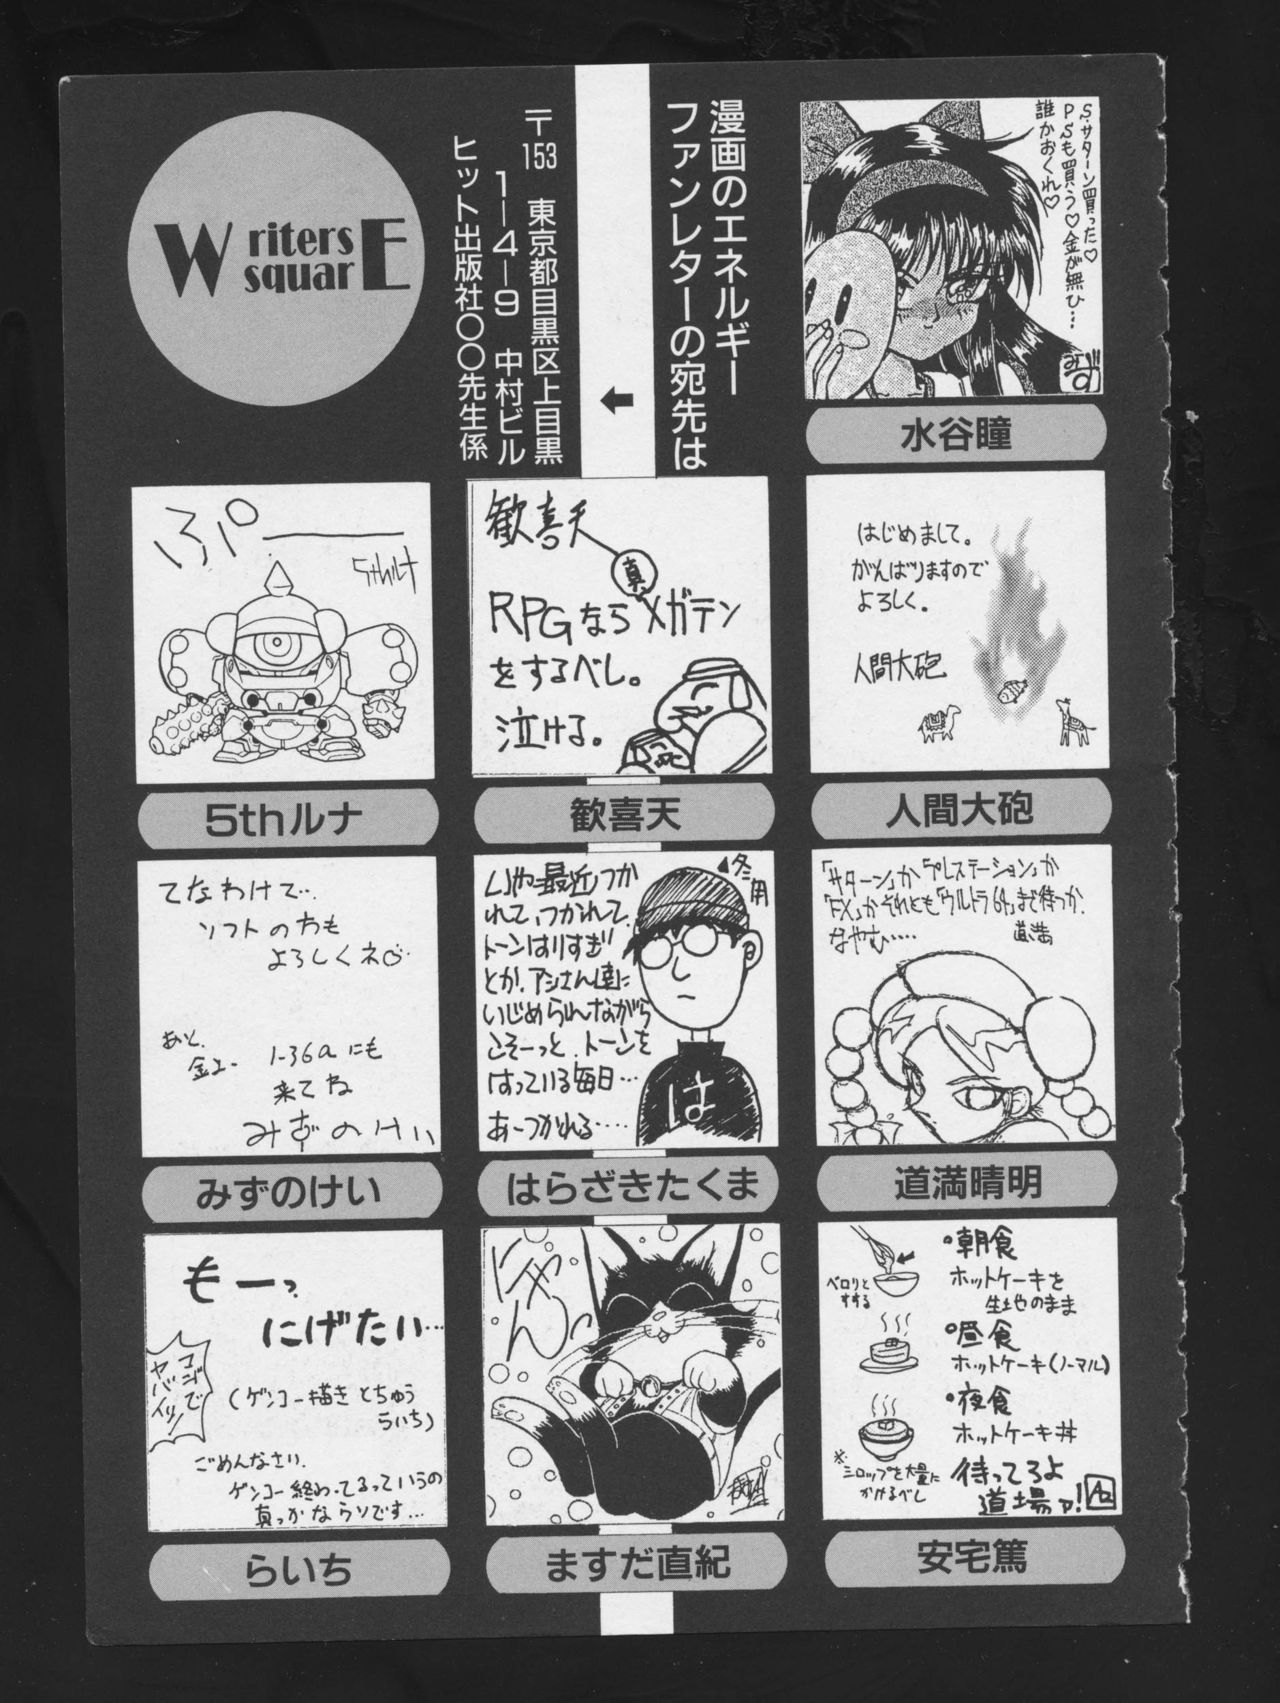 S.サターン買った♡
PSも買う♡金が無ひ…
誰かおくれ♡
みず
水谷瞳
漫画のエネルギー
ファンレターの宛先は
〒153 東京都目黒区上目黒
1―4―9 中村ビル
ヒット出版社〇〇先生係
Writers
squarE
はじめまして。
がんばりますので
よろしく。
人間大砲
人間大砲
歓喜天
真
RPGならメガテン
をするべし。
泣ける。
歓喜天
ぷ°――
5thルナ
5thルナ
「サターン」か「プレステーション」か
「FX」かそれとも「ウルトラ64」まで待つか、
なやむ‥‥
道満
道満晴明
いや最近つか
れて、つかれて、
トーンはりすぎ
とか、アシさん達に
いじめられながら
こそーっと、トーンを
はっている毎日…
あーつかれる‥‥
▲冬用
は
はらざきたくま
てなわけで‥
ソフトの方も
よろしくネ
あと、
1-36aにも
来てね
みずのけい
みずのけい
•朝食
ホットケーキを
生地のまま
ベロリと
すする
•昼食
ホットケーキ(ノーマル)
•夜食
ホットケーキ丼
※シロップを大量に
かけるべし
待ってろよ
道場ァ!
安宅篤
にゃんっ
ますだ直紀
もーっ
にげたい…
コジで
ヤバイッ!
(ゲンコー描きとちゅう
らいち)
ごめんなさい、
ゲンコー終わってるっていうの
真っかなウソです…
らいち